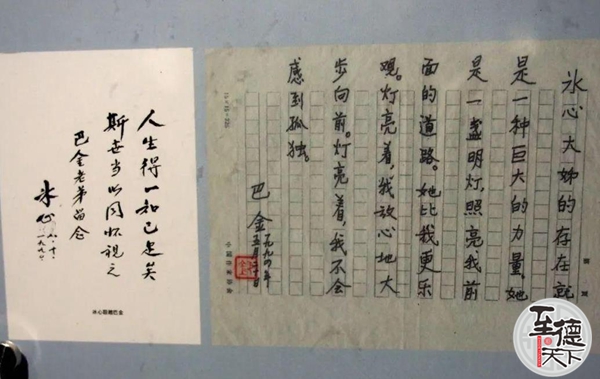 冰心大姊的存在就
是一种巨大的力量。她
是一盏明灯,照亮我前
面的道路。她比我更乐
观。灯亮着,我放心地大
步向前。灯亮着,我不会
感到孤独。
巴金
一九九四年
人生得一知己足矣
斯世当以同怀视之
巴金老弟留念
冰心
冰心题赠巴金
至德天下